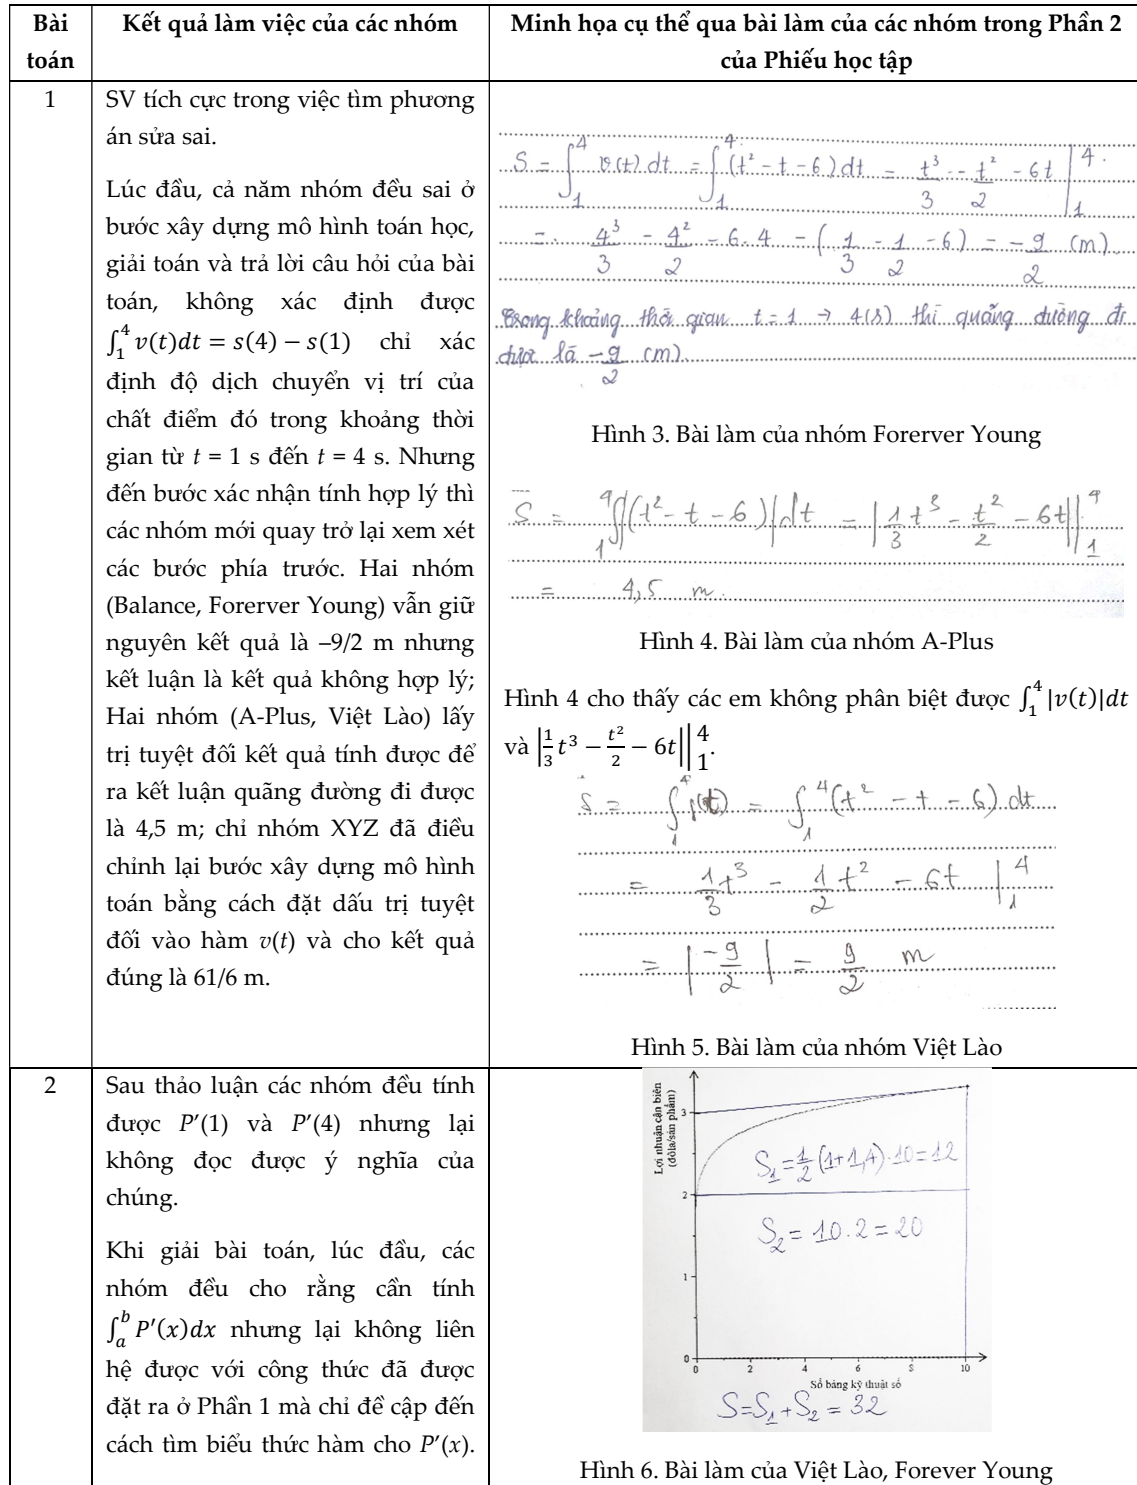 Bài toán
Kết quả làm việc của các nhóm
Minh họa cụ thể qua bài làm của các nhóm trong Phần 2 của Phiếu học tập
1
SV tích cực trong việc tìm phương
án sửa sai.
Lúc đầu, cả năm nhóm đều sai ở
bước xây dựng mô hình toán học,
giải toán và trả lời câu hỏi của bài
toán, không xác định được
∫₁⁴ v(t)dt = s(4) − s(1) chỉ xác
định độ dịch chuyển vị trí của
chất điểm đó trong khoảng thời
gian từ t = 1 s đến t = 4 s. Nhưng
đến bước xác nhận tính hợp lý thì
các nhóm mới quay trở lại xem xét
các bước phía trước. Hai nhóm
(Balance, Forerver Young) vẫn giữ
nguyên kết quả là –9/2 m nhưng
kết luận là kết quả không hợp lý;
Hai nhóm (A-Plus, Việt Lào) lấy
trị tuyệt đối kết quả tính được để
ra kết luận quãng đường đi được
là 4,5 m; chỉ nhóm XYZ đã điều
chỉnh lại bước xây dựng mô hình
toán bằng cách đặt dấu trị tuyệt
đối vào hàm v(t) và cho kết quả
đúng là 61/6 m.
S = ∫₁⁴ v(t) dt = ∫₁⁴ (t² - t - 6) dt = t³/3 - t²/2 - 6t |₁⁴
= 4³/3 - 4²/2 - 6.4 - (1/3 - 1/2 - 6) = -9/2 (m)
Trong khoảng thời gian t = 1 → 4(s) thì quãng đường đi
được là -9/2 (m).
Hình 3. Bài làm của nhóm Forerver Young
S = ₁⁴∫|(t² - t - 6)|dt = |1/3 t³ - t²/2 - 6t||₁⁴
= 4,5 m.
Hình 4. Bài làm của nhóm A-Plus
Hình 4 cho thấy các em không phân biệt được ∫₁⁴ |v(t)|dt
và |1/3 t³ − t²/2 − 6t||₁⁴.
S = ∫₁⁴ = ∫₁⁴ (t² - t - 6) dt
= 1/3 t³ - 1/2 t² - 6t |₁⁴
= |-9/2| = 9/2 m
Hình 5. Bài làm của nhóm Việt Lào
2
Sau thảo luận các nhóm đều tính
được P′(1) và P′(4) nhưng lại
không đọc được ý nghĩa của
chúng.
Khi giải bài toán, lúc đầu, các
nhóm đều cho rằng cần tính
∫ₐᵇ P′(x)dx nhưng lại không liên
hệ được với công thức đã được
đặt ra ở Phần 1 mà chỉ đề cập đến
cách tìm biểu thức hàm cho P′(x).
Lợi nhuận cận biên
(đôla/sản phẩm)
3
S₁ = 1/2 (1+1,4).10 = 12
2
S₂ = 10.2 = 20
1
0
0 2 4 6 8 10
Số bảng kỹ thuật số
S = S₁ + S₂ = 32
Hình 6. Bài làm của Việt Lào, Forever Young